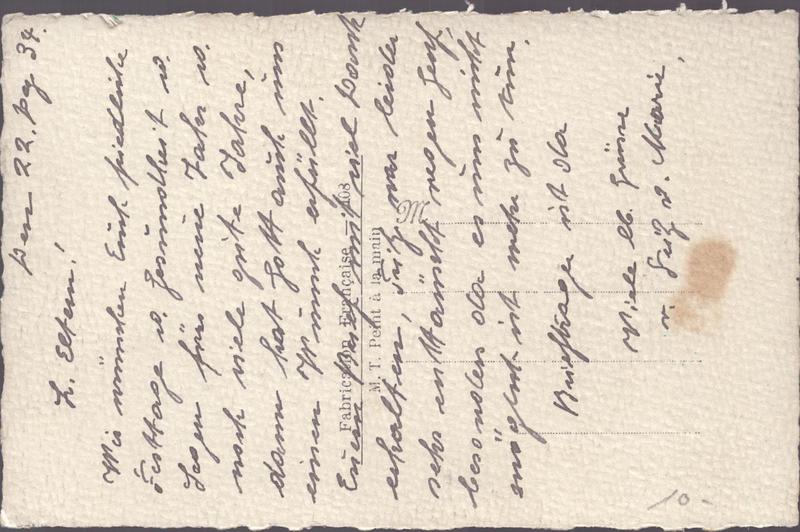 Den 22. Dez 34.
L. Eltern!
Wir wünschen Euch friedliche
Festtage u. Gesundheit u.
Segen fürs neue Jahr u.
noch viele gute Jahre,
dann hat Gott auch uns
einen Wunsch erfüllt.
Euern Brief mit viel Dank
erhalten, Fritz war leider
sehr enttäuscht wegen
besonders da es uns nicht
möglich ist mehr zu tun.
Briefträger ist da
Viele lb. Grüsse
v. Fritz u. Marie,
Fabrication Française — 108
M. T. Peint à la main
M
10-